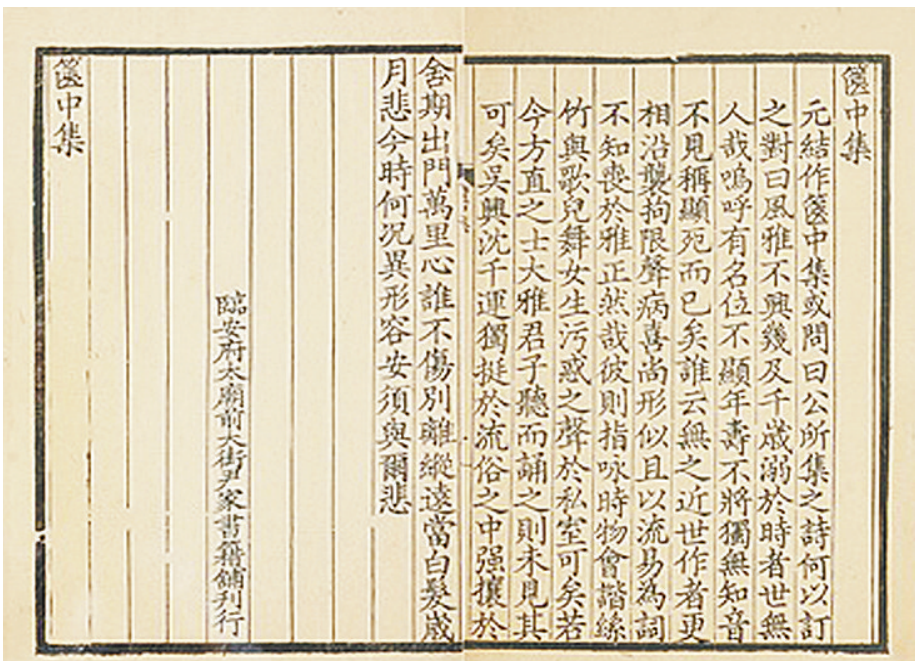 篋中集
元結作篋中集或問曰公所集之詩何以訂
之對曰風雅不興幾及千歳溺於時者世無
人哉嗚呼有名位不顯年壽不將獨無知音
不見稱顯死而已矣誰云無之近世作者更
相沿襲拘限聲病喜尚形似且以流易為詞
不知喪於雅正然哉彼則指咏時物會諧絲
竹與歌兒舞女生污惑之聲於私室可矣若
今方直之士大雅君子聽而誦之則未見其
可矣吳興沈千運獨挺於流俗之中强攘於
舍期出門萬里心誰不傷別離縱遠當白髮歳
月悲今時何況異形容安須與爾悲
臨安府太廟前大街尹家書籍鋪刊行
篋中集